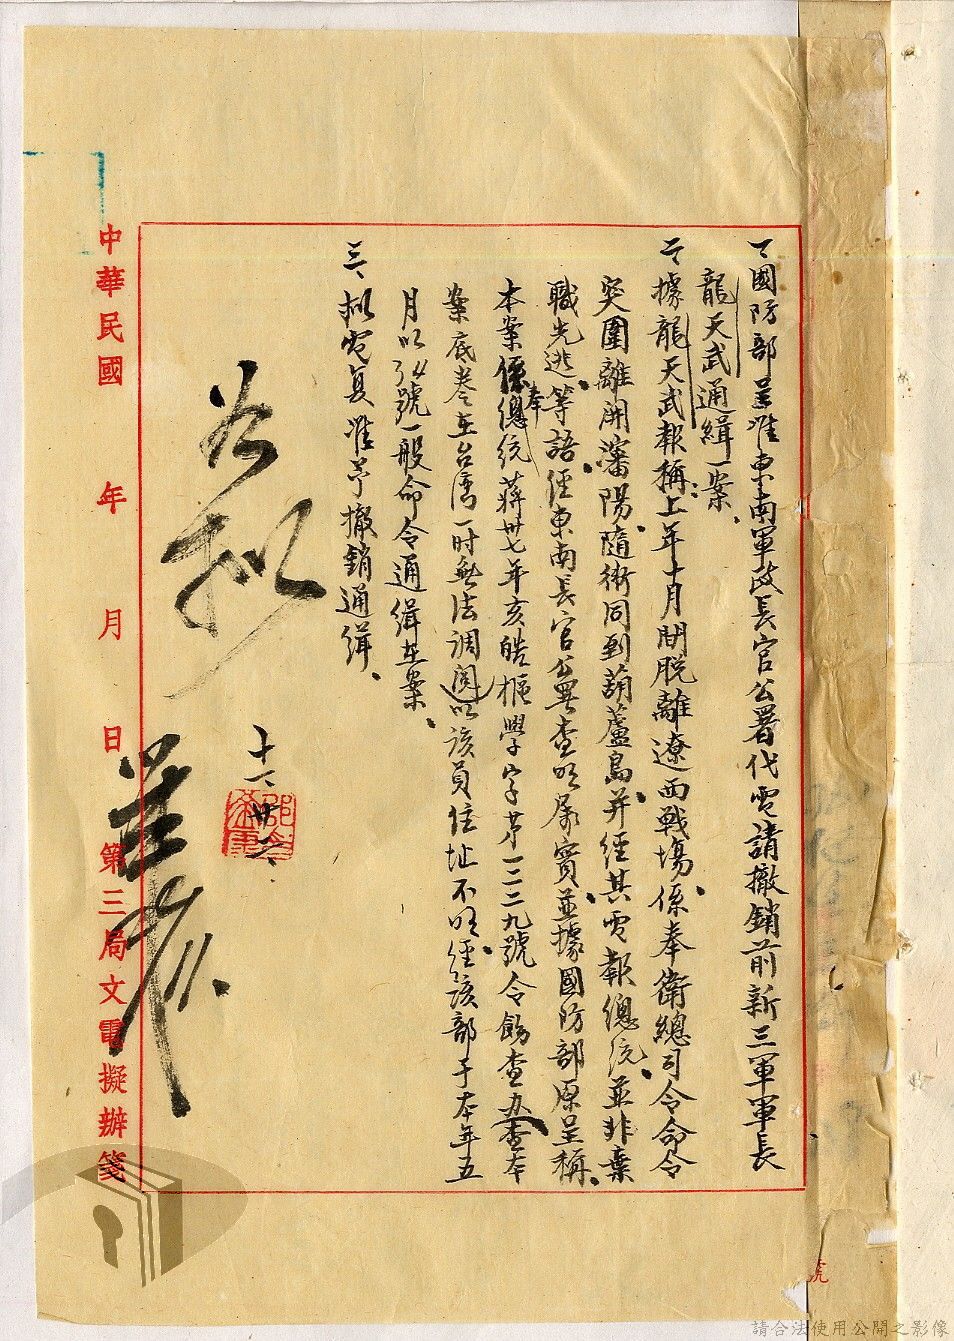 一、國防部呈准東南軍政長官公署代電請撤銷前新三軍軍長
龍天武通緝一案、
二、據龍天武報稱：上年十月間脫離遼西戰場、係奉衛總司令命令
突圍離開瀋陽、隨衛同到葫蘆島、并經其電報總統、並非棄
職先逃、等語、經東南長官公署查明屬實、並據國防部原呈稱、
本案係奉總統蔣卅七年亥皓樞學字第一二二九號令飭查办查本
案底卷在台灣一時無法調閱以該員住址不明、經該部于本年五
月以34號一般命令通緝在案、
三、拟電复准予撤銷通緝、
如拟
十一、廿六、
中華民國　年　月　日　第三局文電擬辦箋
號
請合法使用公開之影像